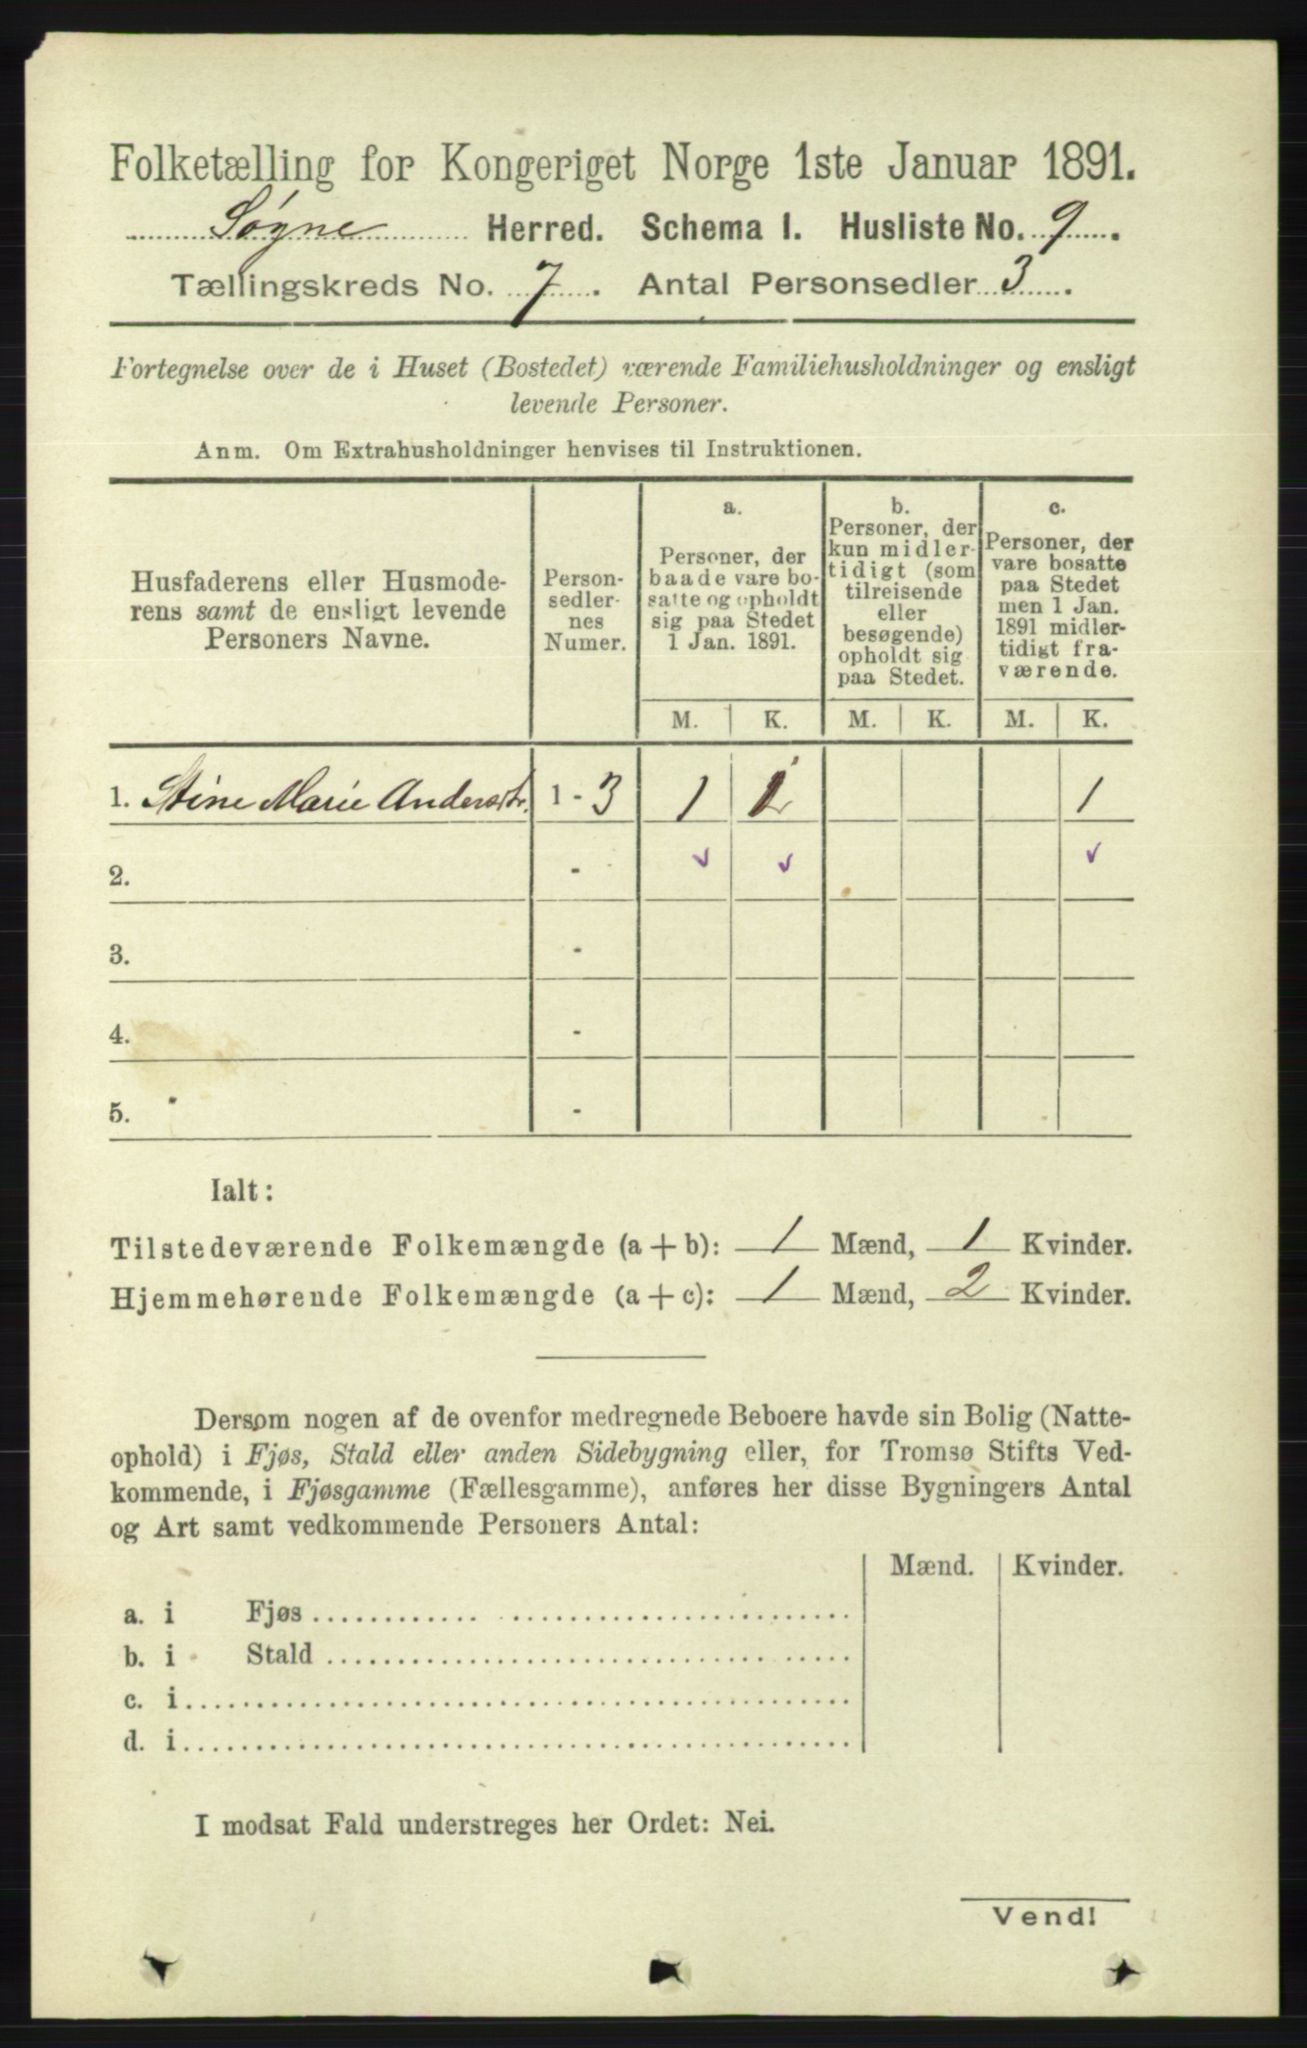 Folketælling for Kongeriget Norge 1ste Januar 1891.
Søgne Herred. Schema I. Husliste No. 9.
Tællingskreds No. 7. Antal Personsedler 3.
Fortegnelse over de i Huset (Bostedet) værende Familiehusholdninger og ensligt
levende Personer.
Anm. Om Extrahusholdninger henvises til Instruktionen.
Husfaderens eller Husmode-
rens samt de ensligt levende
Personers Navne.
Person-
sedler-
nes
Numer.
a.
Personer, der
baade vare bo-
satte og opholdt
sig paa Stedet
1 Jan. 1891.
b.
Personer, der
kun midler-
tidigt (som
tilreisende
eller
besøgende)
opholdt sig
paa Stedet.
c.
Personer, der
vare bosatte
paa Stedet
men 1 Jan.
1891 midler-
tidigt fra-
værende.
M. K. M. K. M. K.
1. Stine Marie Andersdtr. 1 - 3 1 1 1
2. -
3. -
4. -
5. -
Ialt:
Tilstedeværende Folkemængde (a + b): 1 Mænd, 1 Kvinder.
Hjemmehørende Folkemængde (a + c): 1 Mænd, 2 Kvinder.
Dersom nogen af de ovenfor medregnede Beboere havde sin Bolig (Natte-
ophold) i Fjøs, Stald eller anden Sidebygning eller, for Tromsø Stifts Ved-
kommende, i Fjøsgamme (Fællesgamme), anføres her disse Bygningers Antal
og Art samt vedkommende Personers Antal:
Mænd. Kvinder.
a. i Fjøs
b. i Stald
c. i
d. i
I modsat Fald understreges her Ordet: Nei.
Vend!